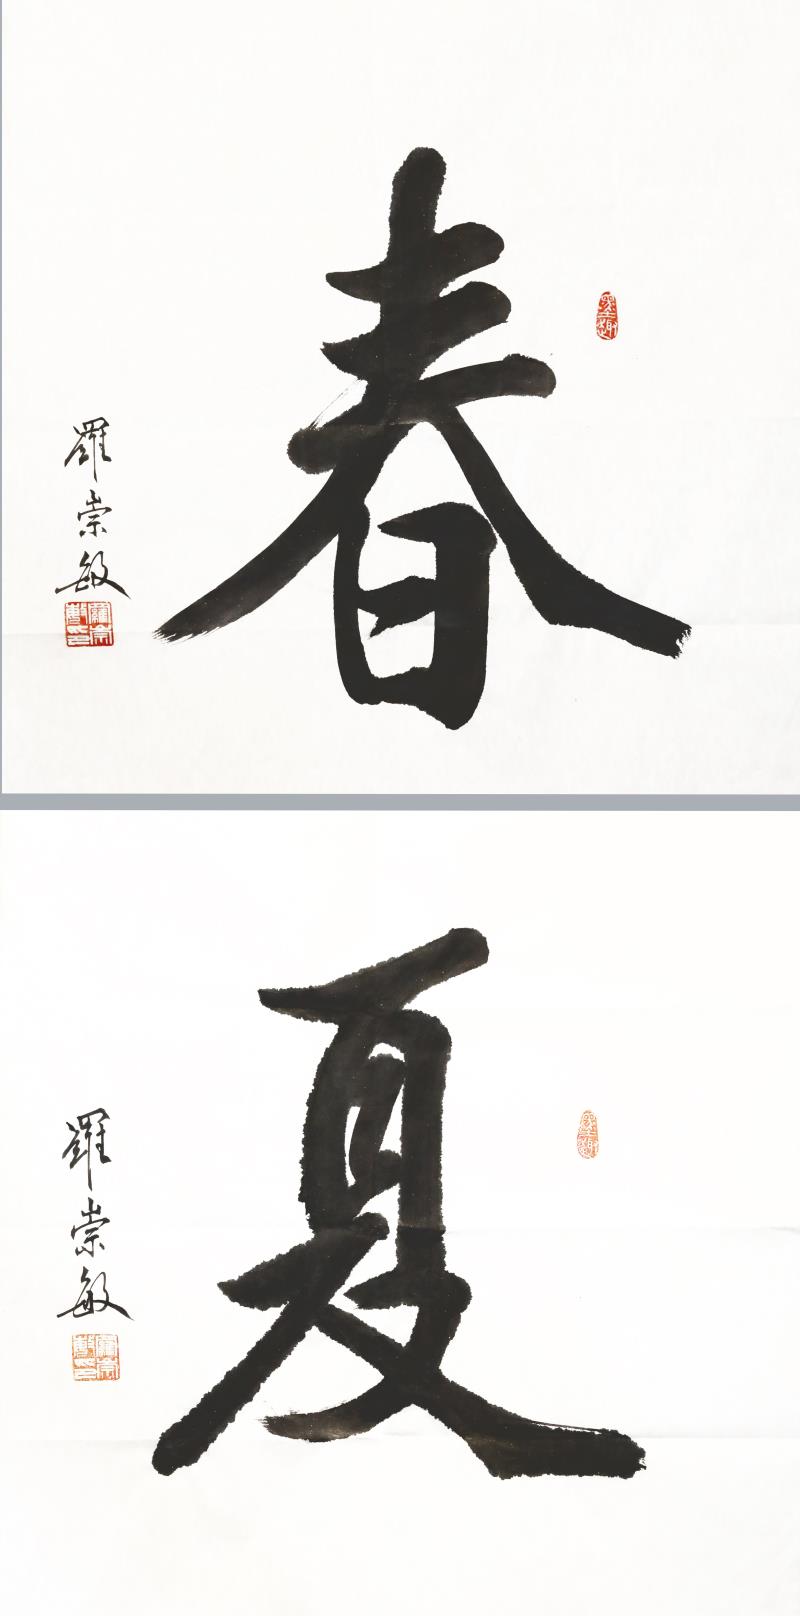 春
羅崇敏
夏
羅崇敏